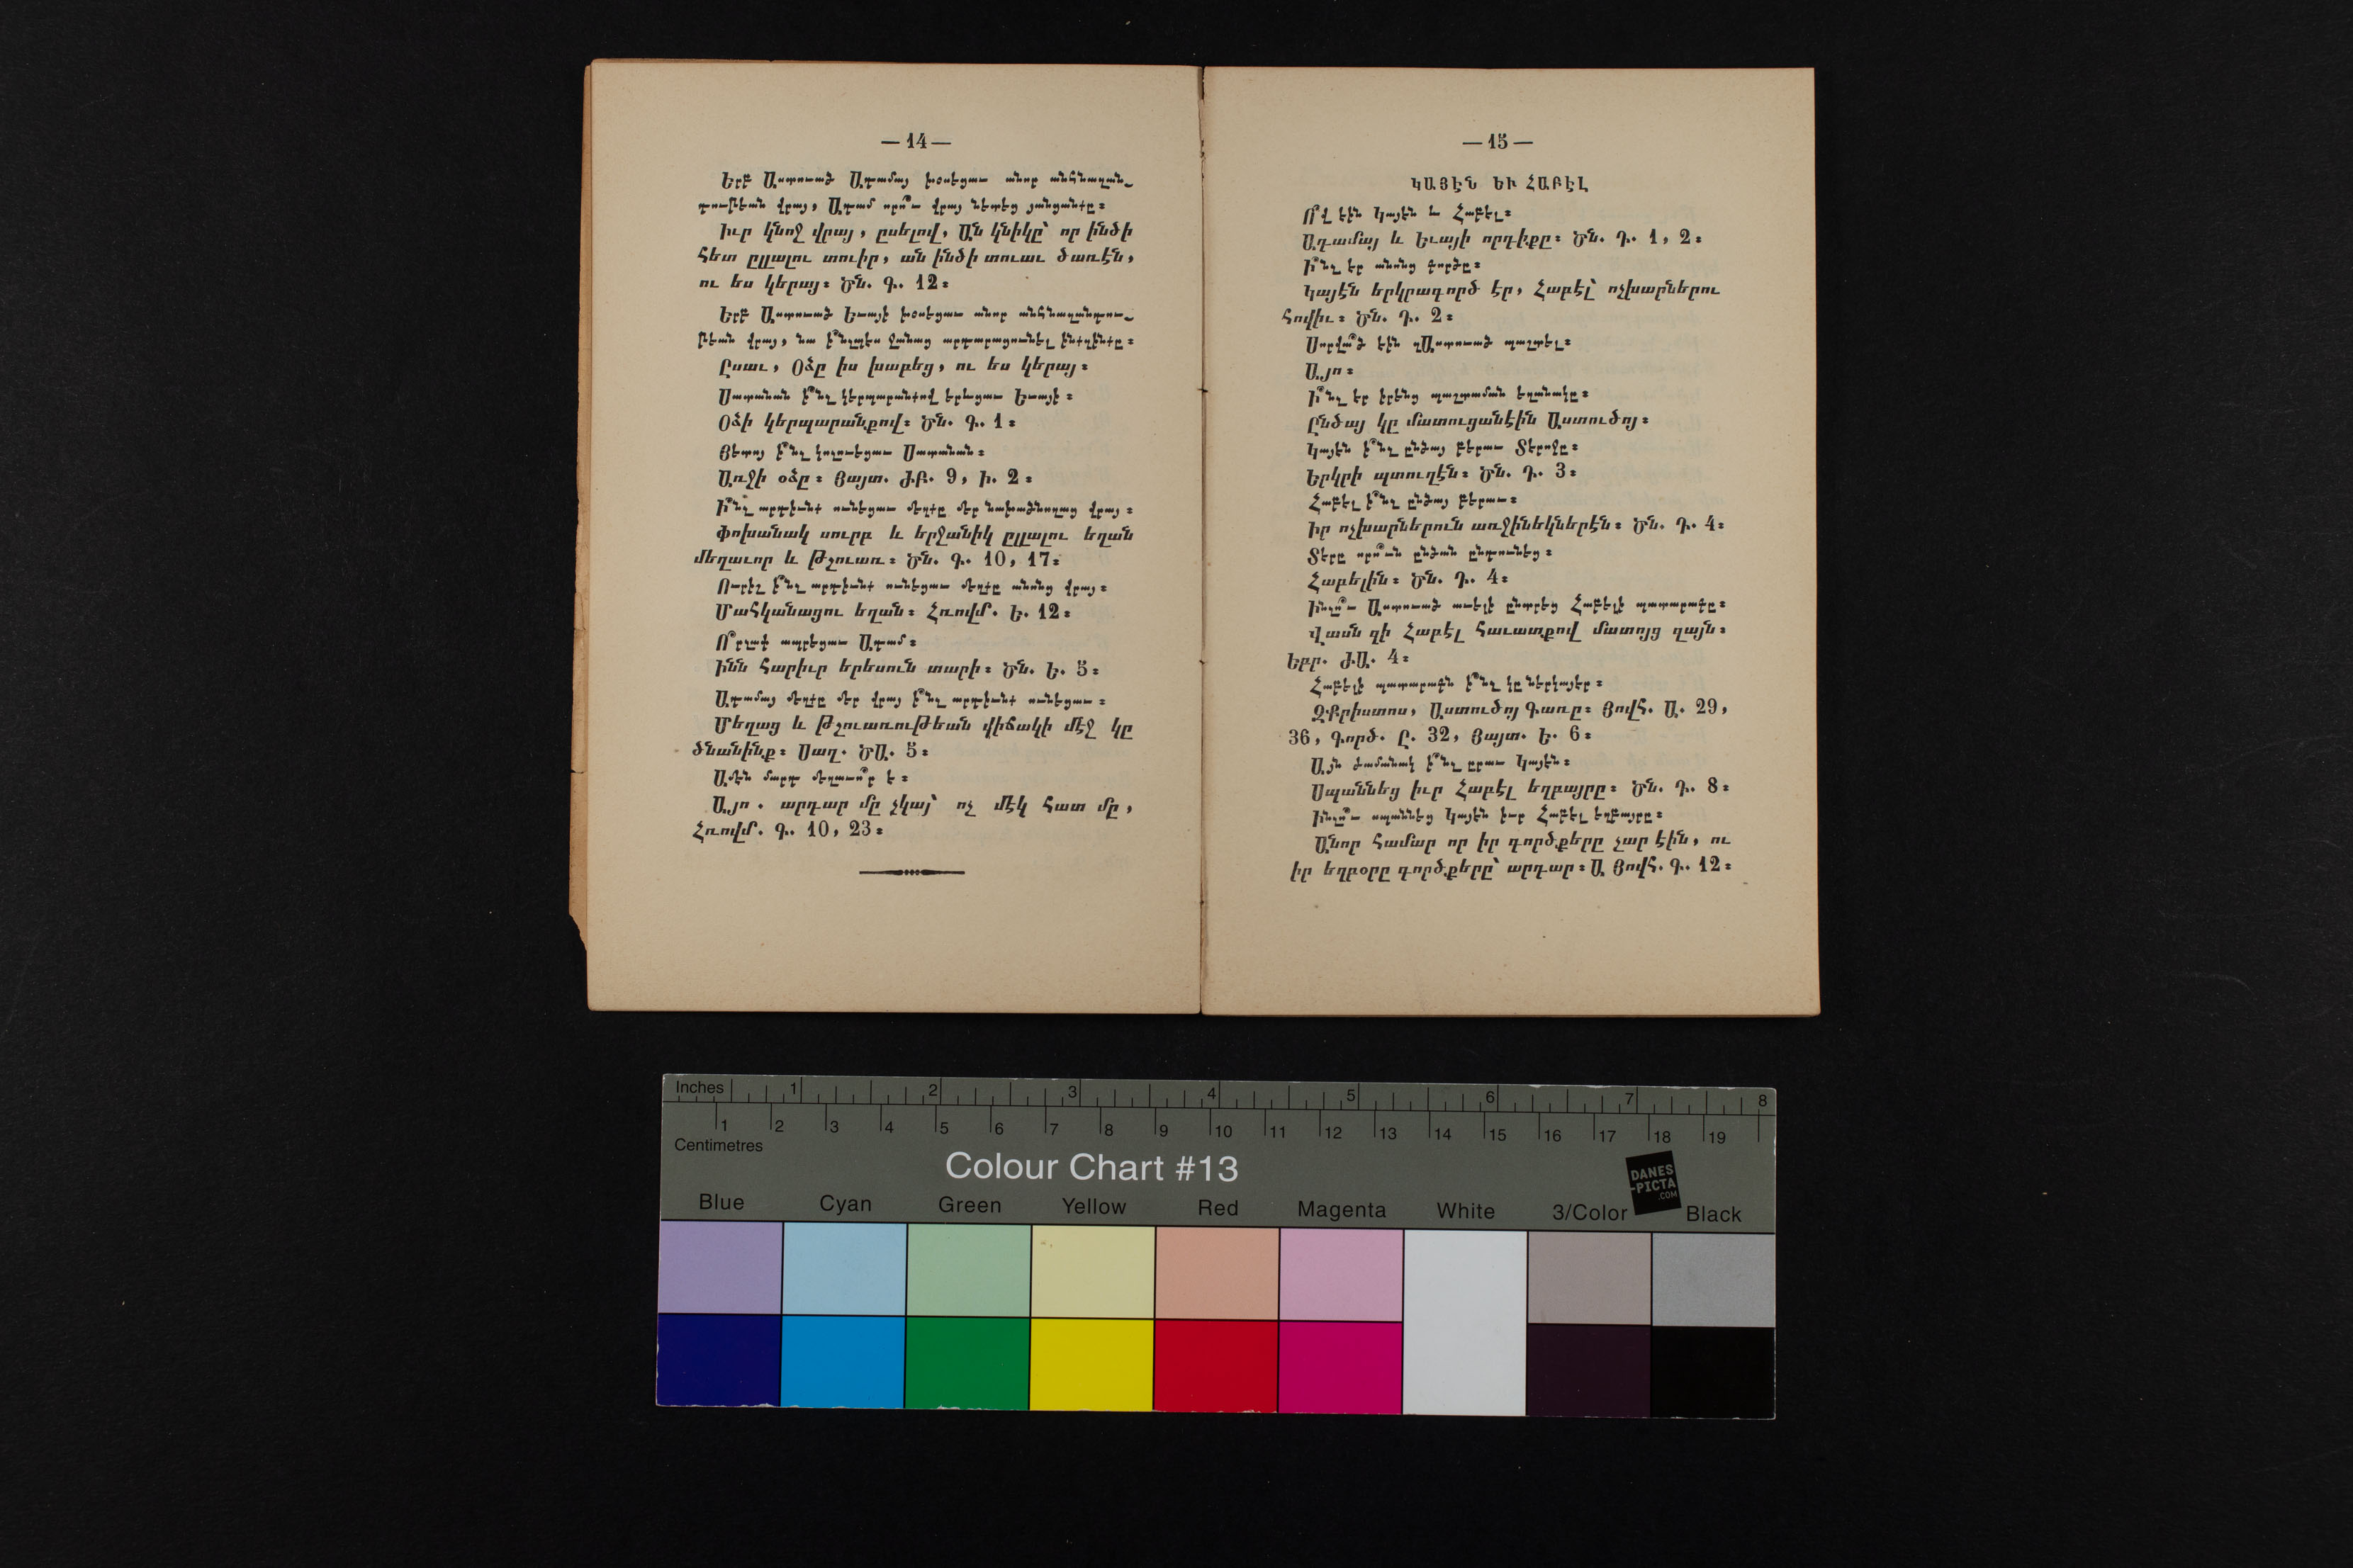 — 14 —
Երբ Աստուած Ադամայ խօսեցաւ անոր անհնազան֊
դութեան վրայ, Ադամ որո՞ւ վրայ նետեց յանցանքը։
Իւր կնոջ վրայ, ըսելով, Այն կնիկը՝ որ ինծի
հետ ըլլալու տուիր, ան ինծի տուաւ ծառէն,
ու ես կերայ։ Ծն. Գ. 12։
Երբ Աստուած Եւայի խօսեցաւ անոր անհնազանդու֊
թեան վրայ, նա ի՞նչպէս ջանաց արդարացունել ինքզինքը։
Ըսաւ, Օձը իս խաբեց, ու ես կերայ։
Սատանան ի՞նչ կերպարանքով երեւցաւ Եւայի։
Օձի կերպարանքով։ Ծն. Գ. 1։
Յետոյ ի՞նչ կոչուեցաւ Սատանան։
Առջի օձը։ Յայտ. ԺԲ. 9, Ի. 2։
Ի՞նչ արդիւնք ունեցաւ մեղքը մեր նախածնողաց վրայ։
Փոխանակ սուրբ և երջանիկ ըլլալու եղան
մեղաւոր և թշուառ։ Ծն. Գ. 10, 17։
Ուրիշ ի՞նչ արդիւնք ունեցաւ մեղքը անոնց վրայ։
Մահկանացու եղան։ Հռովմ. Ե. 12։
Ո՞րչափ ապրեցաւ Ադամ։
Ինն հարիւր երեսուն տարի։ Ծն. Ե. 5։
Ադամայ մեղքը մեր վրայ ի՞նչ արդիւնք ունեցաւ։
Մեղաց և թշուառութեան վիճակի մէջ կը
ծնանինք։ Սաղ. ԾԱ. 5։
Ամէն մարդ մեղաւո՞ր է։
Այո. արդար մը չկայ՝ ոչ մէկ հատ մը,
Հռովմ. Գ. 10, 23։
— 15 —
ԿԱՅԷՆ ԵՒ ՀԱԲԷԼ
Ո՞վ էին Կայէն և Հաբէլ։
Ադամայ և Եւայի որդիքը։ Ծն. Դ. 1, 2։
Ի՞նչ էր անոնց գործը։
Կայէն երկրագործ էր, Հաբէլ՝ ոչխարներու
հովիւ։ Ծն. Դ. 2։
Սորվա՞ծ էին զԱստուած պաշտել։
Այո։
Ի՞նչ էր իրենց պաշտաման եղանակը։
Ընծայ կը մատուցանէին Աստուծոյ։
Կայէն ի՞նչ ընծայ բերաւ Տէրոջը։
Երկրի պտուղէն։ Ծն. Դ. 3։
Հաբէլ ի՞նչ ընծայ բերաւ։
Իր ոչխարներուն առջինեկներէն։ Ծն. Դ. 4։
Տէրը որո՞ւն ընծան ընդունեց։
Հաբելին։ Ծն. Դ. 4։
Ինչո՞ւ Աստուած աւելի ընտրեց Հաբելի պատարագը։
Վասն զի Հաբէլ հաւատքով մատոյց զայն։
Եբր. ԺԱ. 4։
Հաբելի պատարագն ի՞նչ կը ներկայէր։
ԶՔրիստոս, Աստուծոյ Գառը։ Յովհ. Ա. 29,
36, Գործ. Ը. 32, Յայտ. Ե. 6։
Այն ժամանակ ի՞նչ ըրաւ Կայէն։
Սպաննեց իւր Հաբէլ եղբայրը։ Ծն. Դ. 8։
Ինչո՞ւ սպաննեց Կայէն իւր Հաբէլ եղբայրը։
Անոր համար որ իր գործքերը չար էին, ու
իր եղբօրը գործքերը՝ արդար։ Ա Յովհ. Գ. 12։
Inches 1 2 3 4 5 6 7 8
1 2 3 4 5 6 7 8 9 10 11 12 13 14 15 16 17 18 19
Centimetres
Colour Chart #13
DANES
-PICTA
.COM
Blue Cyan Green Yellow Red Magenta White 3/Color Black